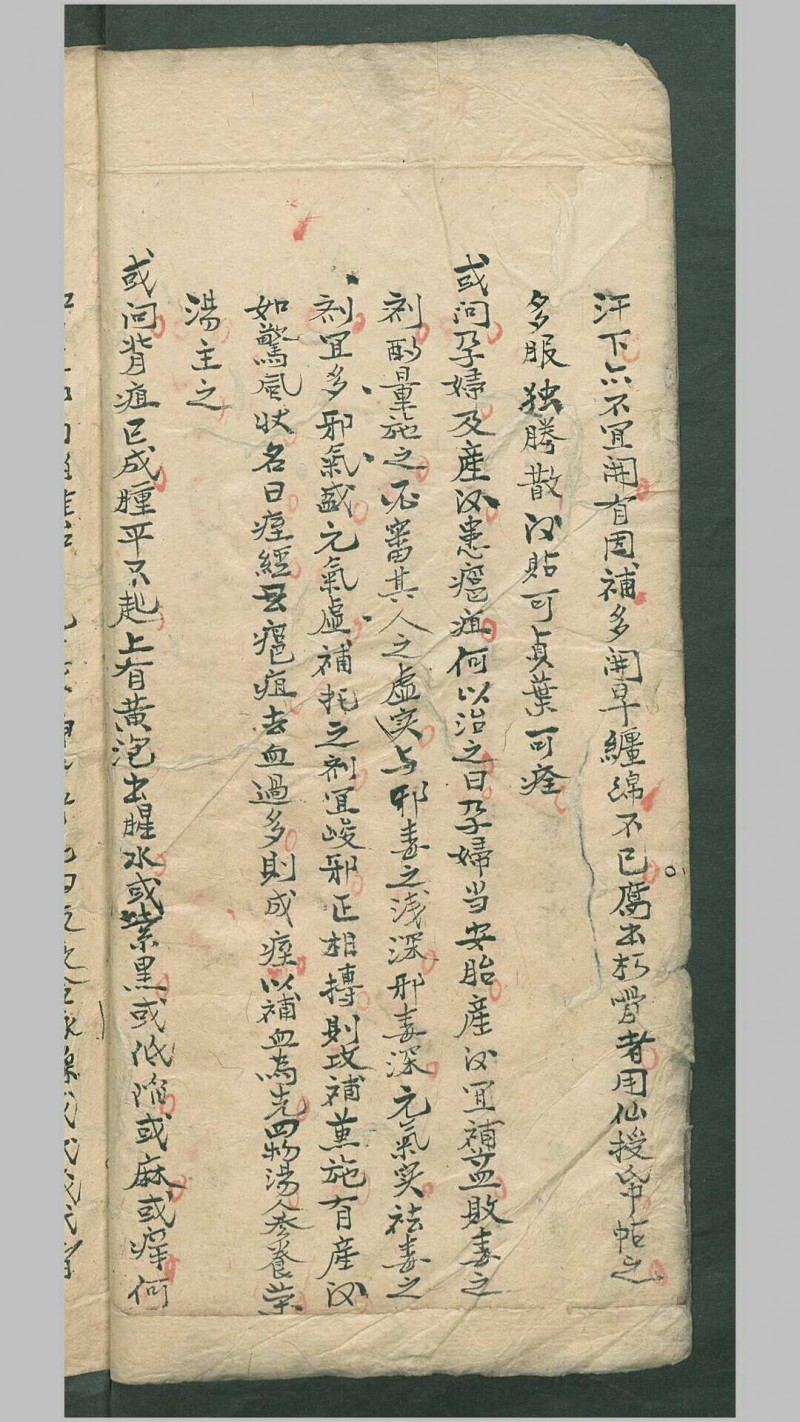 汗下亦不宜開有因補多開早纏綿不已腐出朽骨者用仙授帖之
多服独勝散次貼可貞葉可痊
或问孕婦及産後患瘡疽何以治之曰孕婦当安胎産後宜補益敗毒之
剂酌量施之审其人之虚实与邪毒之浅深邪毒深元氣实祛毒之
剂宜多邪氣盛元氣虚補托之剂宜峻邪正相摶則攻補兼施有産後
如驚風状名曰痙經云瘡疽去血過多則成痙以補血為先四物湯人参養荣
湯主之
或问背疽已成腫平不起上有黄泡出腥水或紫黒或低陷或麻或痒何